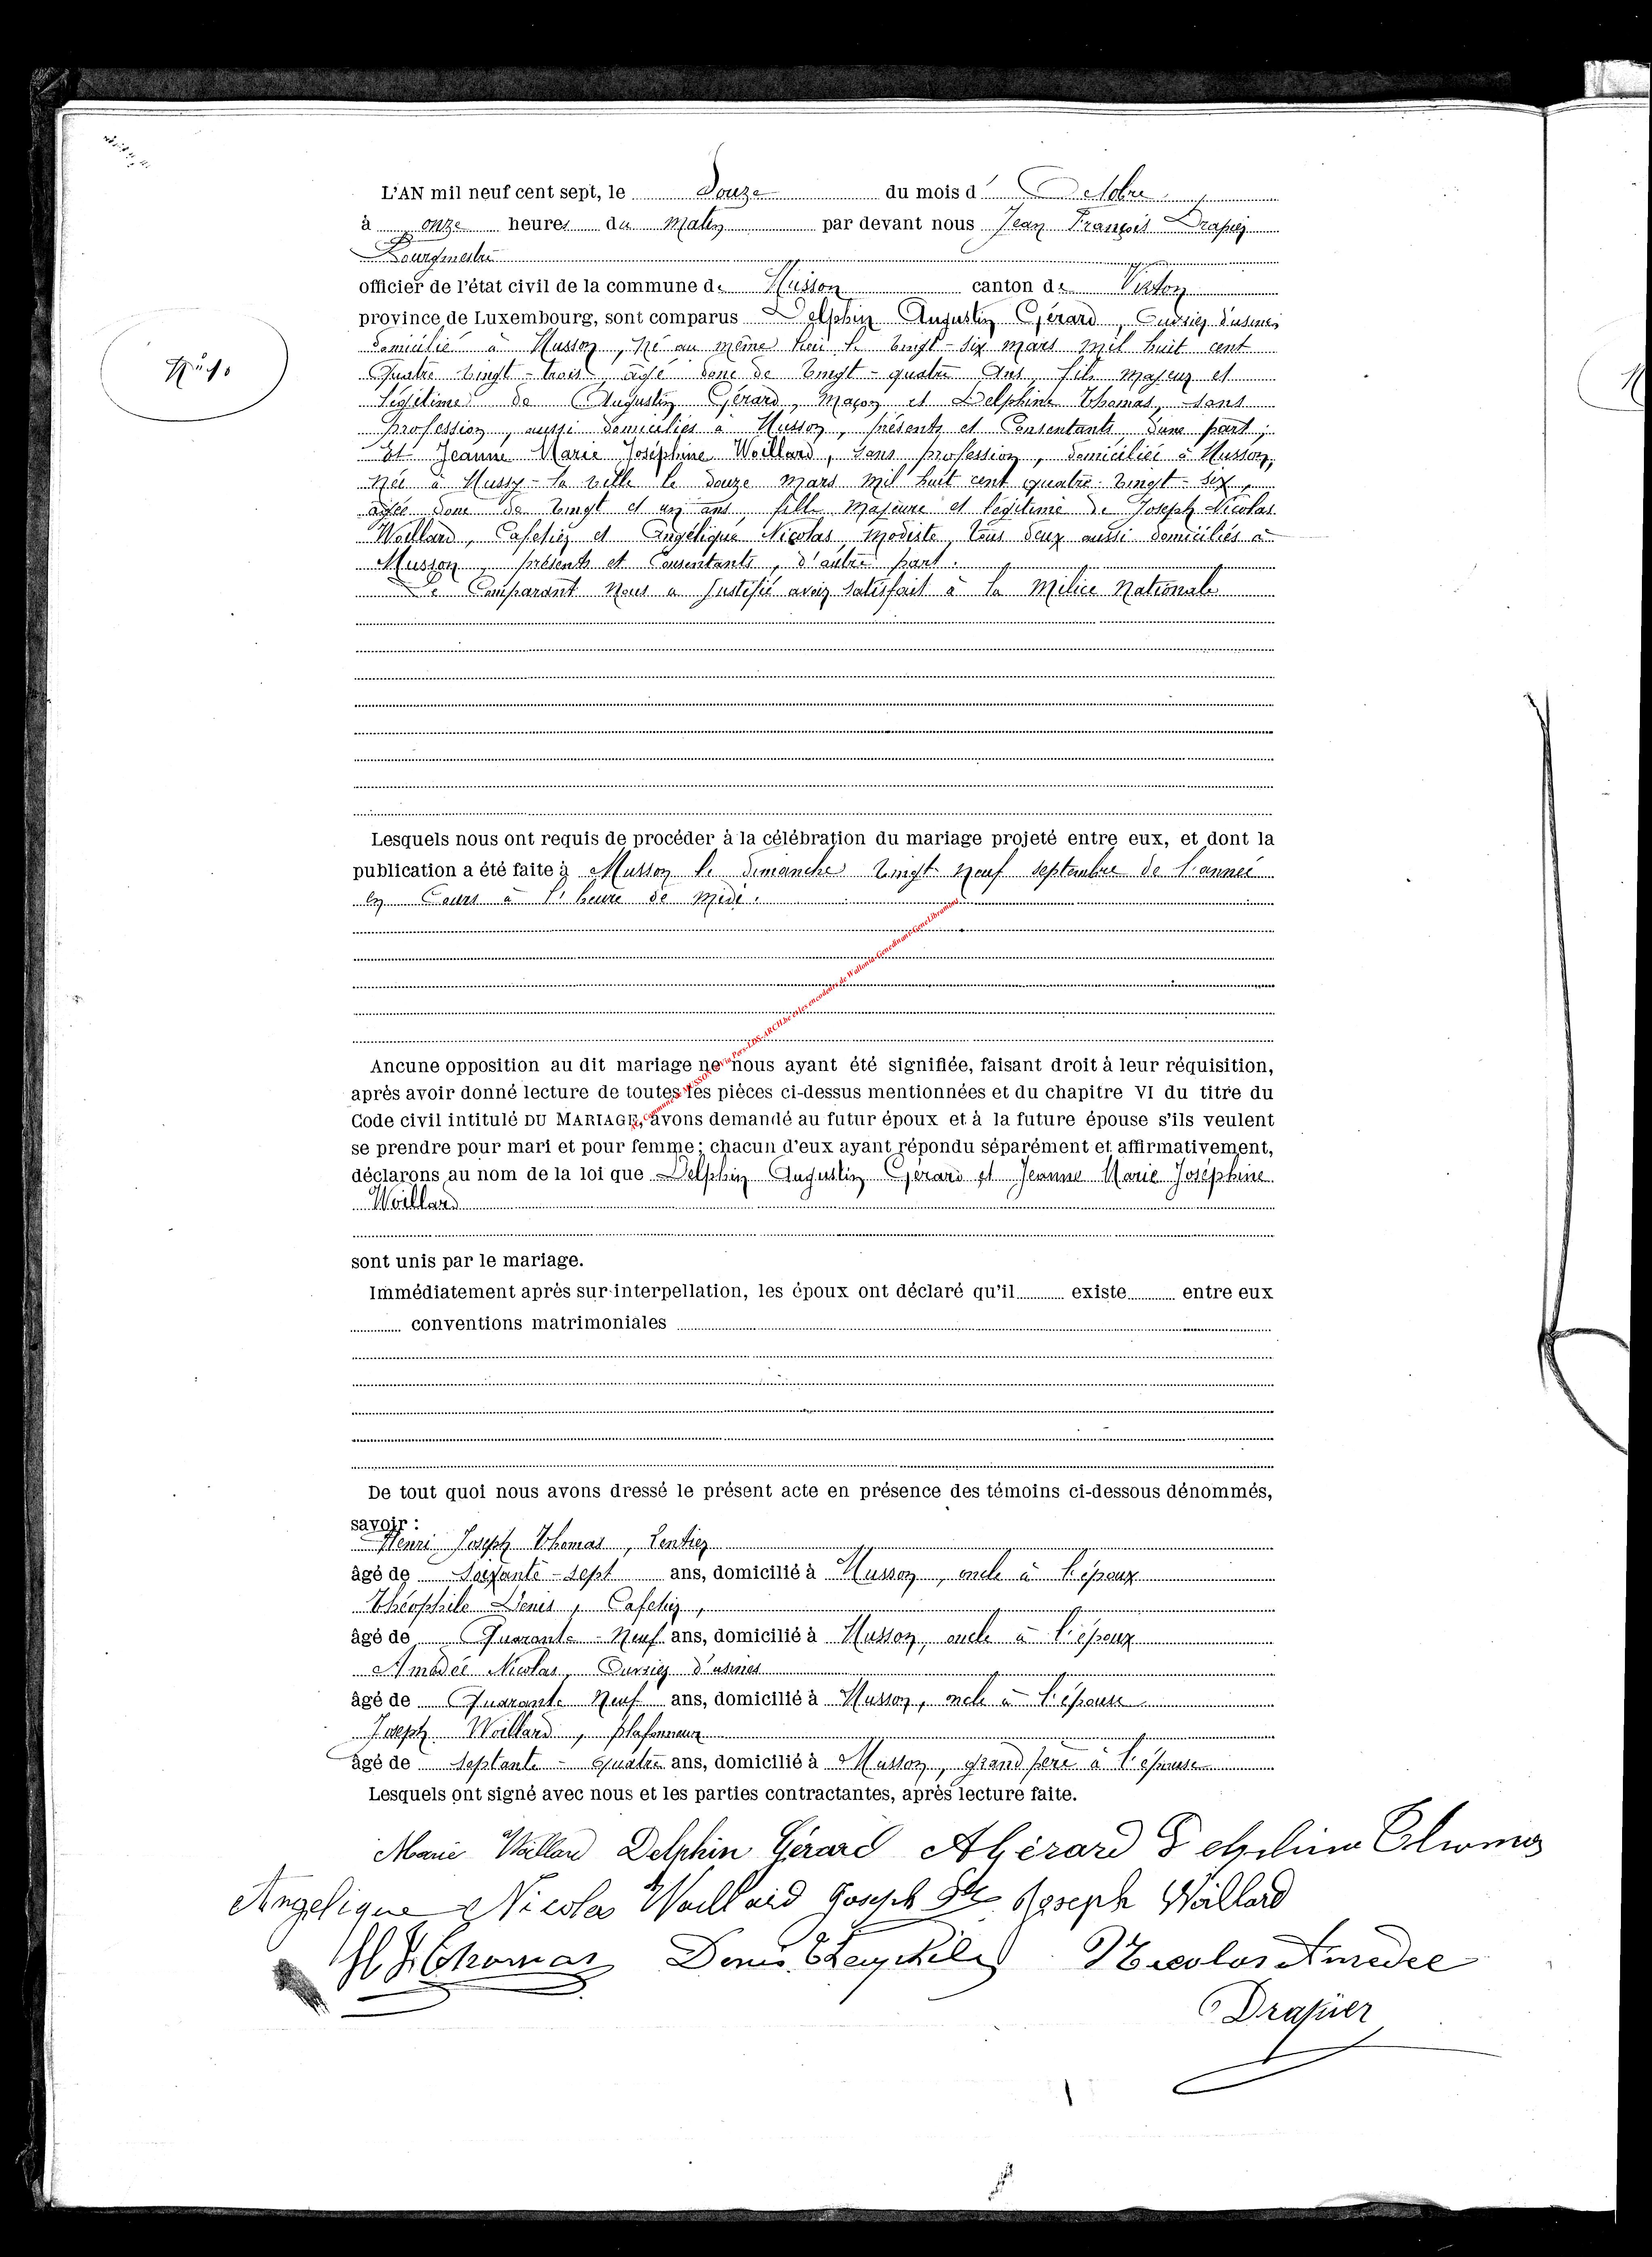 L'AN mil neuf cent sept, le Douze du mois d' Octobre
à onze heures du Matin par devant nous Jean François Drapier
Bourgmestre
officier de l'état civil de la commune de Musson canton de Virton
province de Luxembourg, sont comparus Delphin Augustin Gérard, Ouvrier d'usines
domicilié à Musson, né au même lieu le vingt-six mars mil huit cent
Quatre vingt-trois, âgé donc de Vingt-quatre Ans, fils majeur et
légitime de Augustin Gérard, Maçon et Delphine Thomas, sans
Profession, aussi domiciliés à Musson, présents et Consentants d'une part;
Et Jeanne Marie Joséphine Woillard, sans profession, domiciliée à Musson,
née à Mussy-la-ville le douze Mars mil huit cent quatre-vingt-six,
âgée donc de vingt et un ans, fille Majeure et légitime de Joseph Nicolas
Woillard, Cafetier et Angélique Nicolas, modiste, tous deux aussi domiciliés à
Musson, présents et Consentants, d'autre part.
Le Comparant Nous a Justifié avoir satisfait à la Milice Nationale
Lesquels nous ont requis de procéder à la célébration du mariage projeté entre eux, et dont la
publication a été faite à Musson le dimanche vingt-neuf septembre de l'année
en Cours à l'heure de Midi.
Ancune opposition au dit mariage ne nous ayant été signifiée, faisant droit à leur réquisition,
après avoir donné lecture de toutes les pièces ci-dessus mentionnées et du chapitre VI du titre du
Code civil intitulé DU MARIAGE, avons demandé au futur époux et à la future épouse s'ils veulent
se prendre pour mari et pour femme; chacun d'eux ayant répondu séparément et affirmativement,
déclarons au nom de la loi que Delphin Augustin Gérard et Jeanne Marie Joséphine
Woillard
sont unis par le mariage.
Immédiatement après sur interpellation, les époux ont déclaré qu'il existe entre eux
conventions matrimoniales
De tout quoi nous avons dressé le présent acte en présence des témoins ci-dessous dénommés,
savoir:
Henri Joseph Thomas, Rentier
âgé de Soixante-sept ans, domicilié à Musson, oncle à l'époux
Théophile Denis, Cafetier,
âgé de Quarante-Neuf ans, domicilié à Musson, oncle à l'époux
Amédée Nicolas, Ouvrier d'usines
âgé de Quarante Neuf ans, domicilié à Musson, oncle à l'épouse
Joseph Woillard, plafonneur
âgé de septante-quatre ans, domicilié à Musson, grand père à l'épouse
Lesquels ont signé avec nous et les parties contractantes, après lecture faite.
Marie Woillard Delphin Gérard A Gérard Delphine Thomas
Angelique Nicolas Woillard Joseph Joseph Woillard
H J Thomas Denis Theophile Nicolas Amedee
Drapier